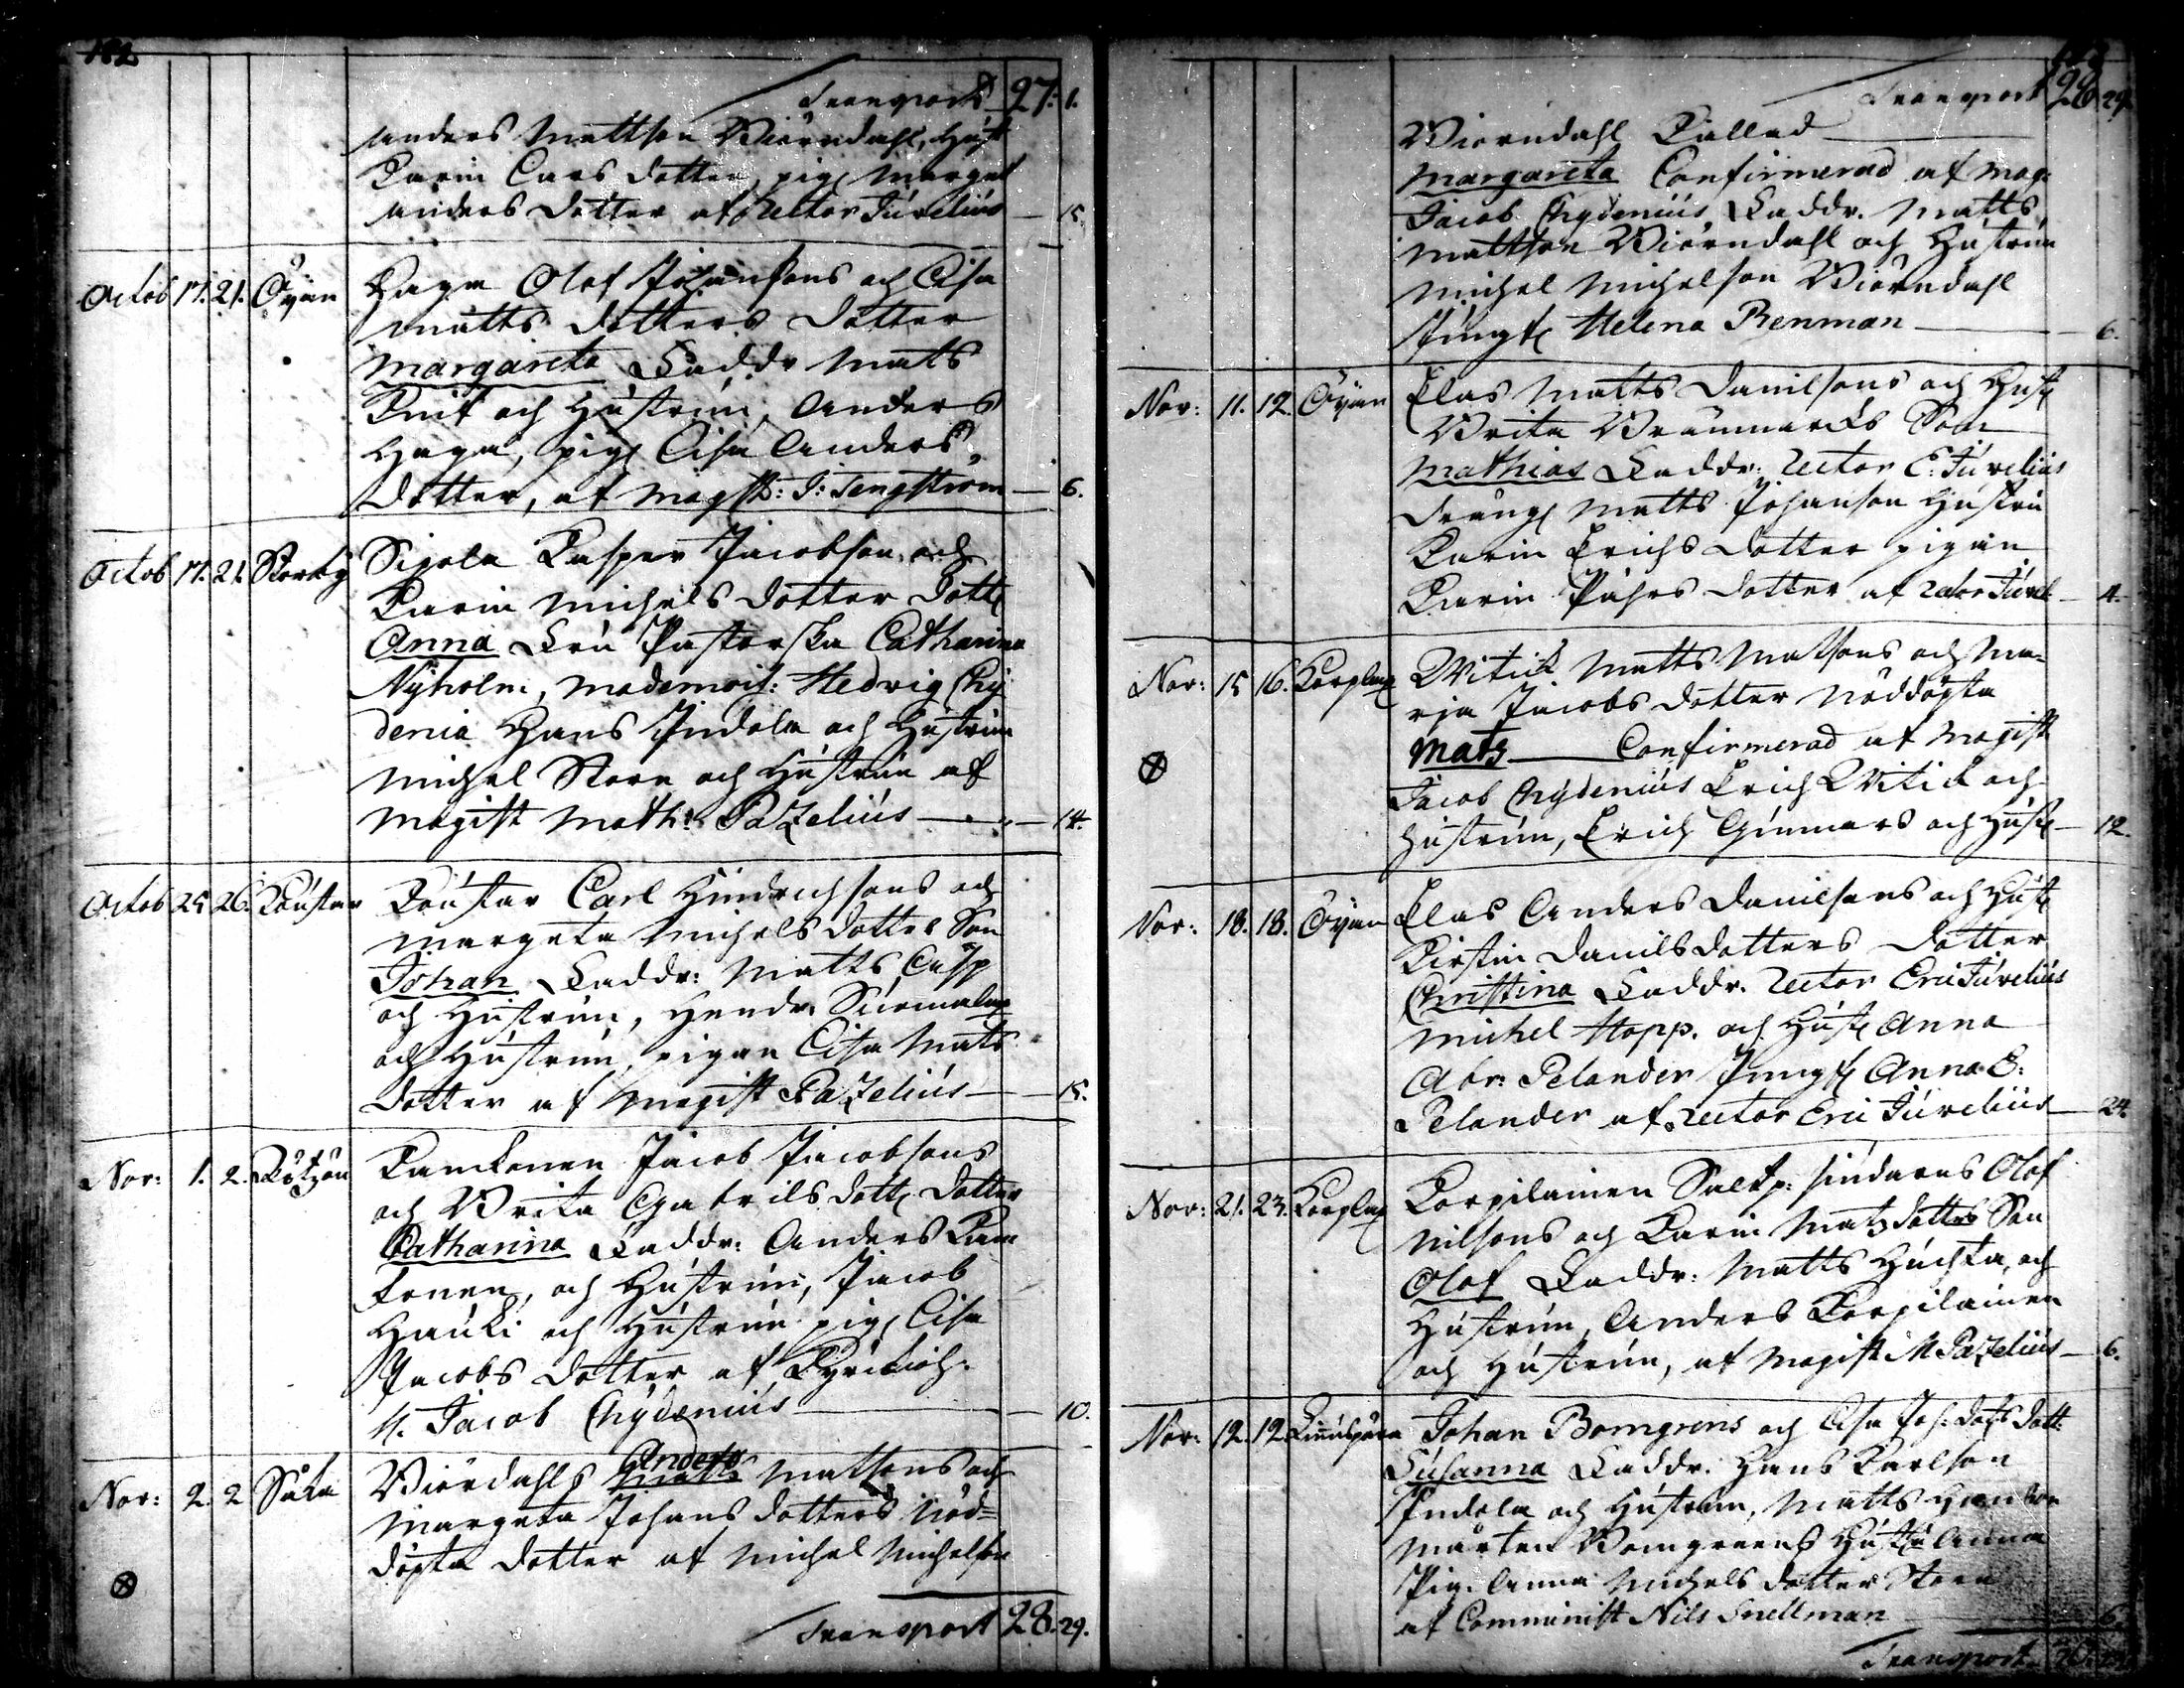 182
Transport 27. 1.
Anders Mattson Biörndahl, Hust
Karin Lars dotter, pig Marget
Anders dotter af Rector Juvelius — 15.
Octob 17. 21. Öijan Haga Olof Johansons och Lisa
Matts dotters dotter
Margareta Faddr Mats
Knif och Hustrun, Anders
Haga, pig Lisa Anders
dotter, af Magist: J: Tengström — 6.
Octob 17. 21. Storby Sipola Casper Jacobson och
Karin Michels dotter dott
Anna Fru Pastorska Catharina
Nyholm, Mademois: Hedvig Chy
denia Hans Indola och Hustrun
Michel Stora och Hustrun af
Magist Math: Pazelius — 14.
Octob 25 26. Röustar Carl Hindrichsons och
Margeta Michels dotter Son
Johan Faddr: Matts Casp
och Hustrun, Hendr.
och Hustrun, pigan Lisa Mats
dotter af Magist Pazelius — 15.
Nor: 1. 2. Kankonen Jacob Jacobsons
och Brita Gabriels dott dotter
Catharina Faddr: Anders Kan
konen, och Hustrun, Jacob
Hauki och Hustrun pig Lisa
Jacobs dotter af
H. Jacob Chydenius — 10.
Anders
Nor: 2. 2 Såka Biördahls Matts Matsons och
Margeta Johans dotters Nöd=
döpta dotter af Michel Michelson
Transport 28. 29.
Transport 28 29.
Biörndahl Kallad
Margareta Confirmerad af Mag:
Jacob Chydenius Faddr. Matts
Mattson Biörndahl och Hustrun
Michel Michelson Biörndahl
Jungf Helena Renman — 6.
Nor: 11. 12. Öijan Elas Matts Danielsons och Hust
Brita Braumarks Son
Mathias Faddr: Rector E. Juvelius
Dräng Matts Johanson Hustru
Karin Erichs dotter pigan
Karin Påhrs dotter af Rector Juvel — 4.
Nor: 15 16. Korplax Witick Matts Matsons och Ma=
ria Jacobs dotter Nöddöpta
Mats — Confirmerad af Magist
Jacob Chydenius Erich Witick och
Hustrun, Erich Gunnars och Hust — 12.
Nor: 18. 18. Öijan Elas Anders Danielsons och Hust
Kirstin Daniels dotters dotter
Christina Faddr. Rector Eric Juvelius
Michel Hopp. och Hust Anna
Abr: Pelander Jungf Anna E:
Pelander af Rector Eric Juvelius — 24
Nor: 21. 23. Korplax Korpilainen Saltp: siudarens Olof
Nilsons och Karin Mats dotters Son
Olof Faddr: Matts Huchta, och
Hustrun, Anders Korpilainen
och Hustrun, af Magist M Pazelius — 6.
Nor: 12. 12. Johan Bomgrens och Lisa Joh: dots Dott
Susanna Faddr. Hans Karlson
Indola och Hustrun, Matts
Mårten Bomgreens Hustru Anna
Pig. Anna Michels dotter Stora
af Comminist Nils Snellman 6.
Transport